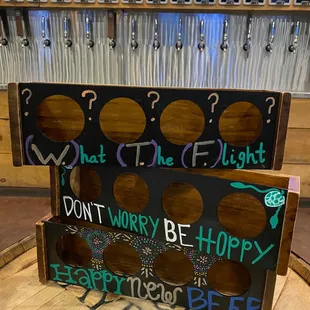 ? ? ? ? ?
(W.)hat (T.)he (F.)light
DON'T WORRY BE HOPPY
HAPPY new BEER